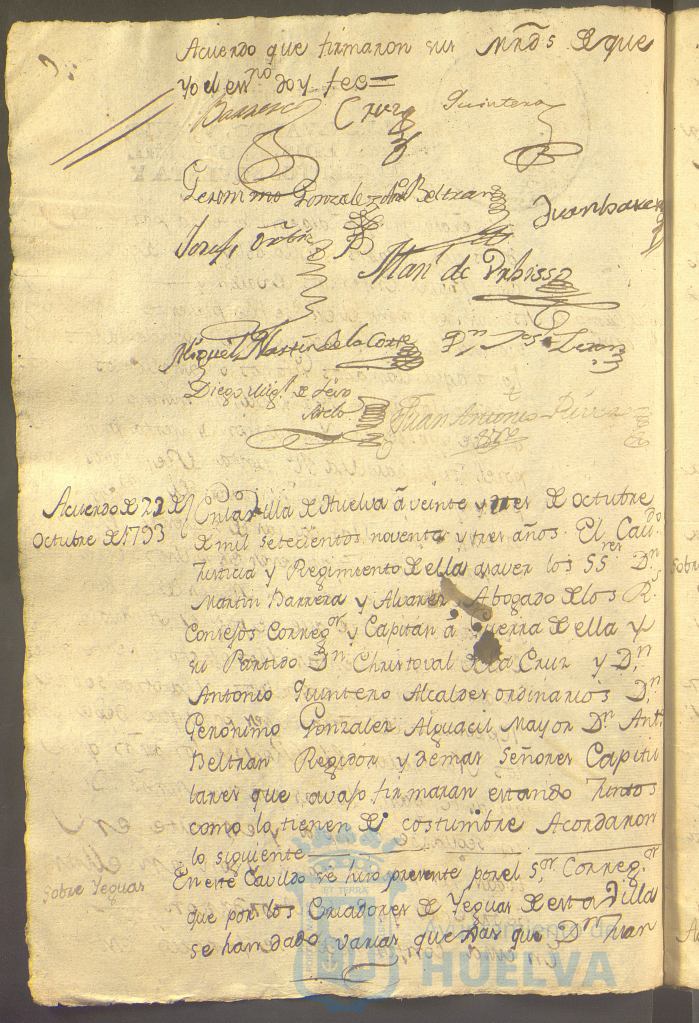 Acuerdo que firmaron sus Mrds. de que
Yo el essno doy fee =
Barrera Cruz Quintero
Geronimo Gonzalez Beltran Juan
Josef
Man.l de Urbisso
Miguel Martin de la Corte D.n Leon
Diego Mig.l de
Juan Antonio Perez
Acuerdo de 22 de
Octubre de 1793
En la Villa de Huelva â veinte y tres de octubre
de mil setecientos noventa y tres años. El Cav.do
Justicia y Regimiento de ella a saver los SS.res D.n
Martin Barrera y Alvarez, Abogado de los R.s
Consejos Correg.or y Capitan â Guerra de ella y
su Partido D.n Christoval de la Cruz y D.n
Antonio Quintero Alcaldes ordinarios D.n
Geronimo Gonzalez Alguacil Mayor D.n Ant.o
Beltran Regidor y demas Señores Capitu
lares que avajo firmaran estando Juntos
como lo tienen de costumbre Acordaron
lo siguiente
Sobre Yeguas
En este Cavildo se hizo presente por el S.or Correg.or
que por los Criadores de Yeguas de esta Villa
se han dado varias quexas que D.n Juan
HUELVA